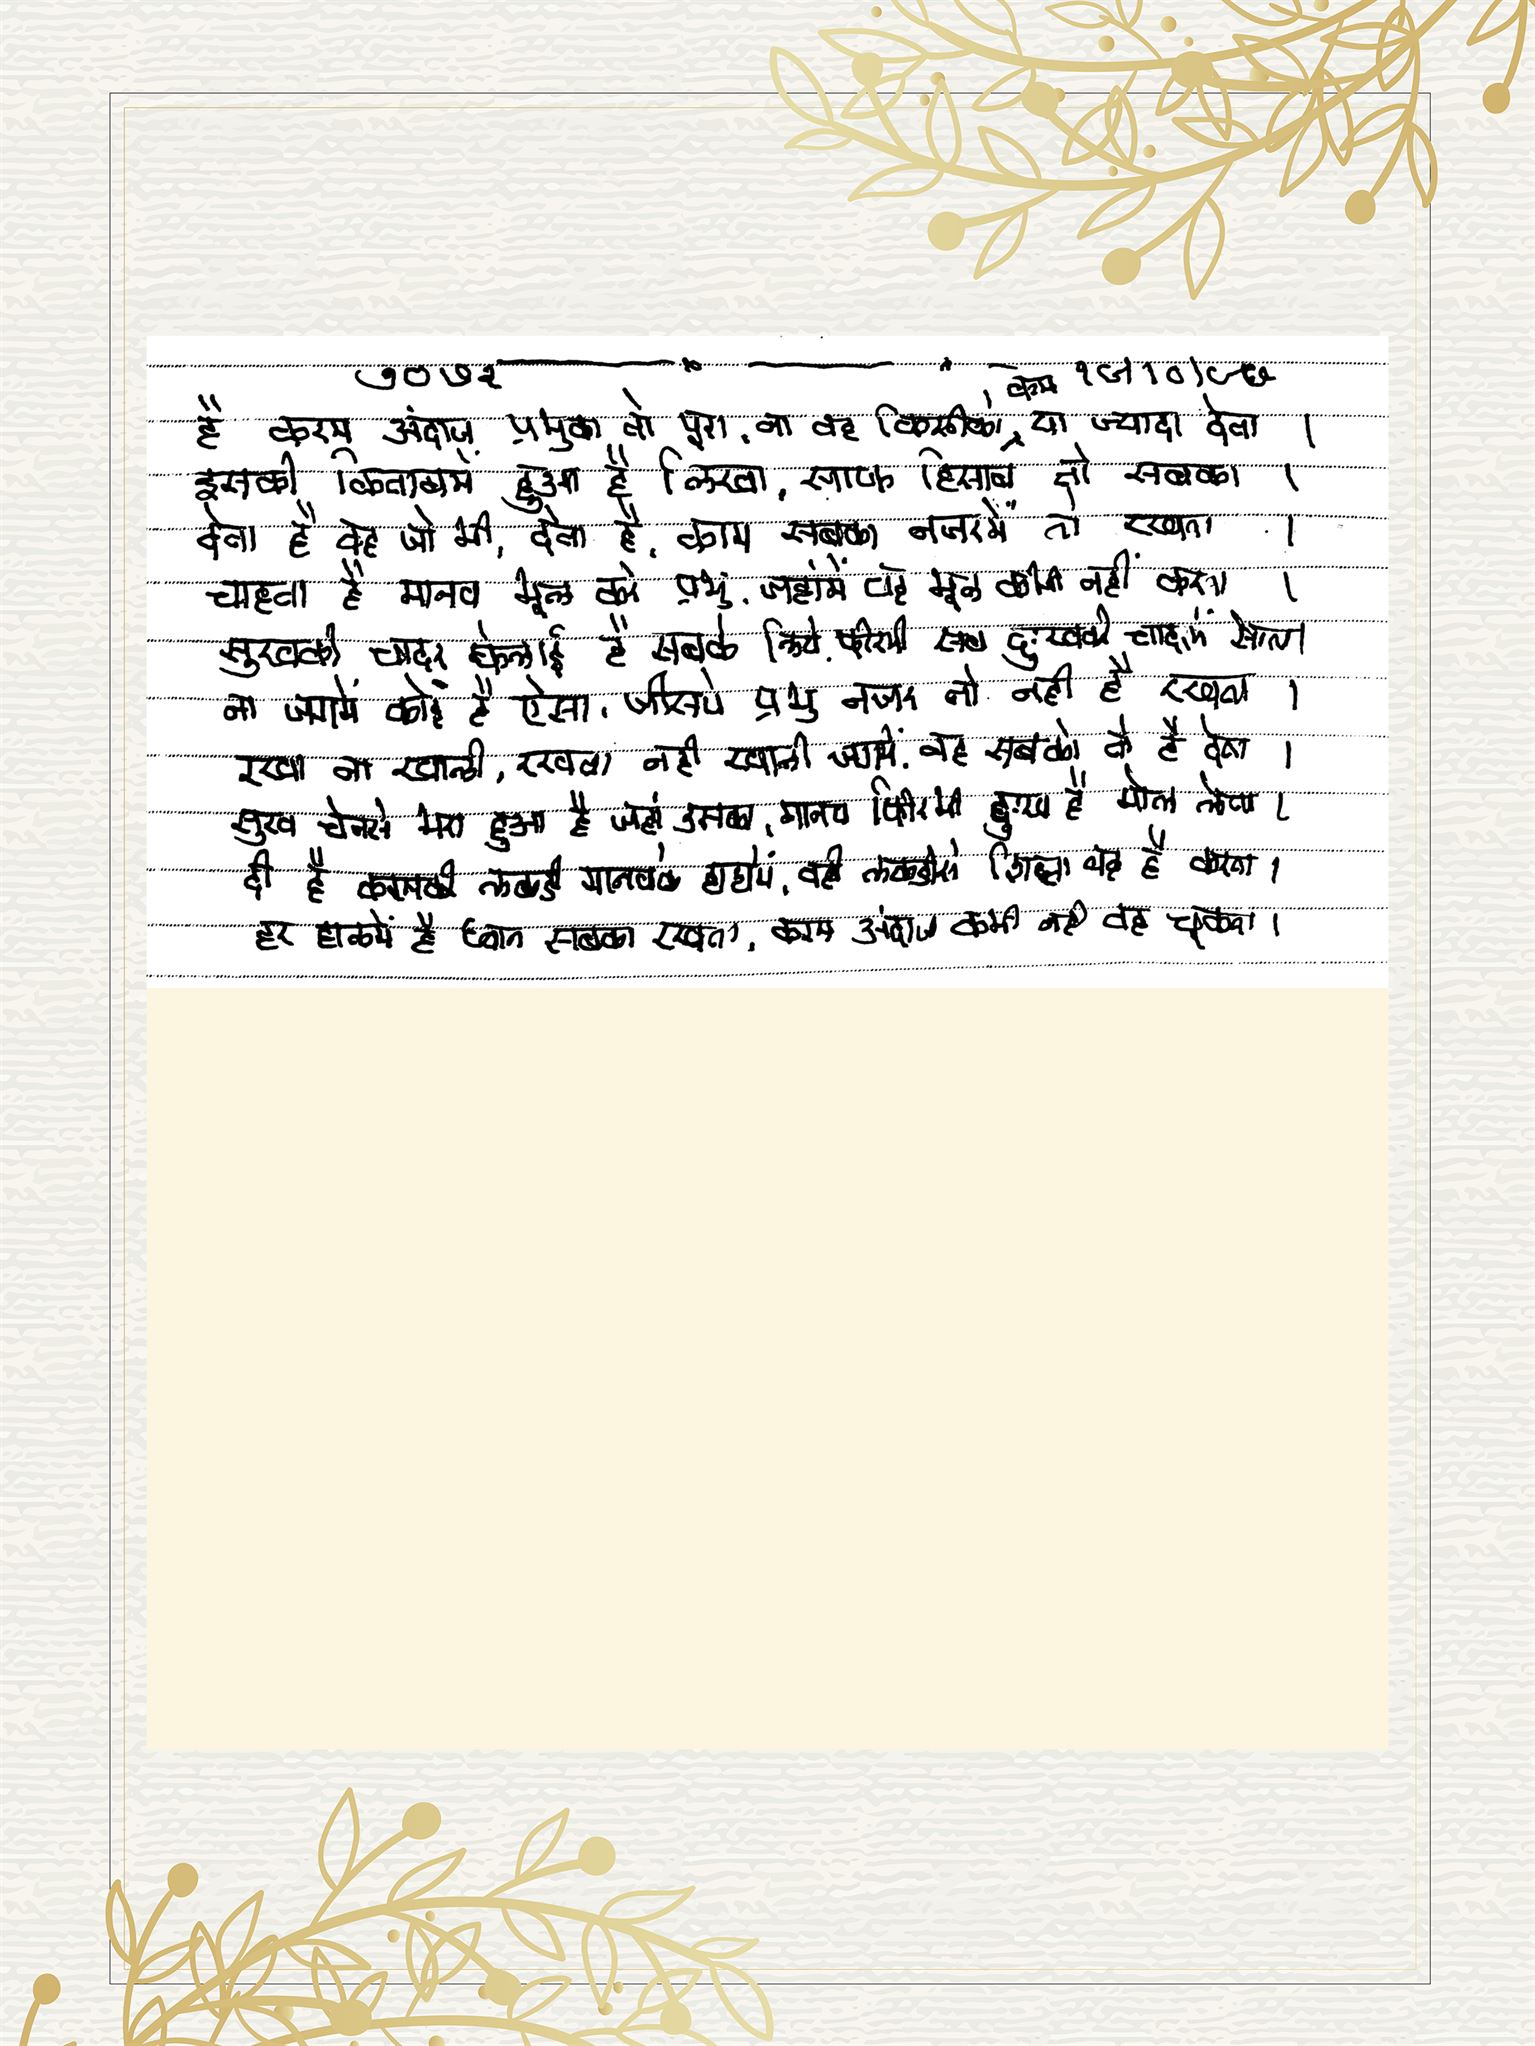 ७०७२ १९।१०।९६
है करम अंदाज प्रभुका तो पूरा, ना वह किसीको कम या ज्यादा देता ।
इसकी किताबमें हुआ है लिखा, साफ हिसाब तो सबका ।
देता है वह जो भी, देता है, काम सबका नजरमें तो रखता ।
चाहता है मानव भूल करे प्रभु, जहांमें वह भूल कभी नहीं करता ।
सुखकी चादर फेलाई है सबके लिये, फीरभी सब दुःखकी चादरमें सोता।
ना जगमें कोई है ऐसा, जीसपे प्रभु नजर तो नही है रखता ।
रखा ना खाली, रखता नही खाली जगमें, वह सबको तो है देता ।
सुख चेनसे भरा हुआ है जहां उसका, मानव फिरभी दुःख है मोल लेता ।
दी है करमकी लकडी मानवके हाथोमें, वही लकडीसे वह है करता ।
हर हालमें है ध्यान सबका रखता, करम अंदाज कभी नही वह चूकता ।